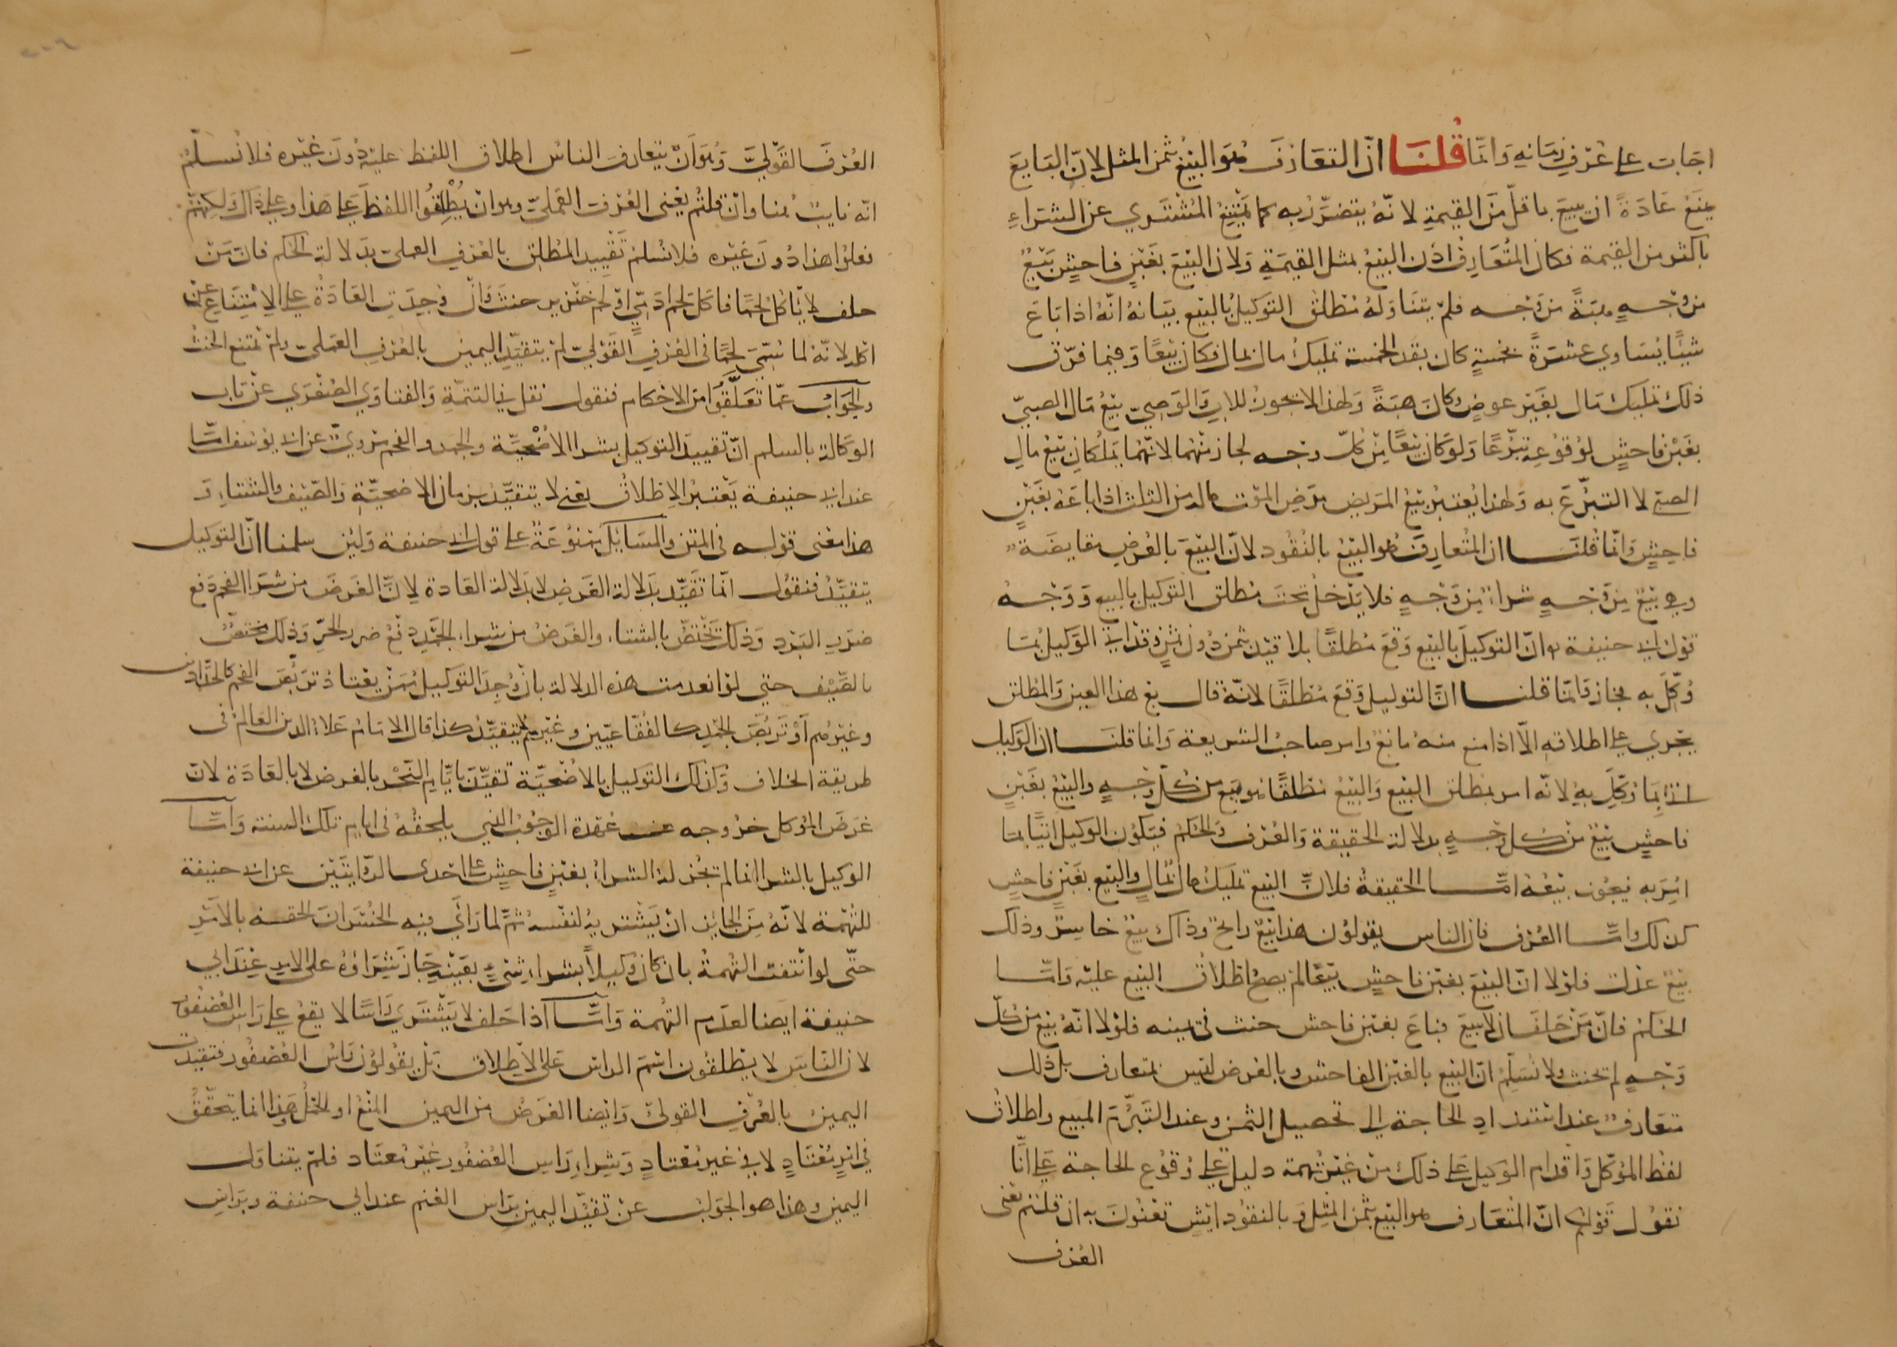 اجاب على عرف زمانه وانما قلنا ان المتعارف هو البيع بثمن المثل لان البايع
يمتنع عادة ان يبيع باقل من القيمة لانه يتضرر به كما يمتنع المشتري عن الشراء
باكثر من القيمة فكان المتعارف اذن البيع بمثل القيمة ولان البيع بغبن فاحش بيع
من وجه هبة من وجه فلم يتناوله مطلق التوكيل بالبيع بيانه انه اذا باع
شيئا يساوي عشرة بخمسة كان بقدر الخمسة تمليك مال بمال فكان بيعا وفيما فوق
ذلك تمليك مال بغير عوض وكان هبة ولهذا لا يجوز للاب والوصي بيع مال الصبي
بغبن فاحش لوقوعه تبرعا ولو كان بيعا من كل وجه لجاز منهما لانهما يملكان بيع مال
الصبي لا التبرع به ولهذا يعتبر بيع المريض مرض الموت ماله من الثلث اذا باعه بغبن
فاحش وانما قلنا ان المتعارف هو البيع بالنقود لان البيع بالعرض مقايضة
وهي بيع من وجه شراء من وجه فلا يدخل تحت مطلق التوكيل بالبيع ووجه
قول ابي حنيفة ان التوكيل بالبيع وقع مطلقا بلا قيد ثمن دون ثمن وقد اتى الوكيل بما
وكل به فجاز وانما قلنا ان التوكيل وقع مطلقا لانه قال بع هذا العين والمطلق
يجري على اطلاقه الا اذا منع منه مانع وامر صاحب الشريعة وانما قلنا ان الوكيل
اتى بما وكل به لانه امر بمطلق البيع والبيع مطلقا هو بيع من كل وجه والبيع بغبن
فاحش بيع من كل وجه بدلالة الحقيقة والعرف والحكم فيكون الوكيل اتيا بما
امر به فيجوز بيعه اما الحقيقة فلان البيع تمليك مال بمال والبيع بغبن فاحش
كذلك واما العرف فان الناس يقولون هذا بيع رابح وذاك بيع خاسر وذلك
بيع عدل فلولا ان البيع بغبن فاحش بيع لما يصح اطلاق البيع عليه واما
الحكم فان من حلف ان لا يبيع فباع بغبن فاحش حنث في يمينه فلولا انه بيع من كل
وجه لم يحنث ولا نسلم ان البيع بالغبن الفاحش وبالعرض ليس بمتعارف بل ذلك
متعارف عند اشتداد الحاجة الى تحصيل الثمن وعند التبرم المبيع واطلاق
لفظ الموكل واقدام الوكيل على ذلك من غير تهمة دليل على وقوع الحاجة على انا
نقول قولكم ان المتعارف هو البيع بثمن المثل وبالنقود ايش تعنون به ان قلتم نعني
العرف
العرف القولي وهو ان يتعارف الناس اطلاق اللفظ عليه دون غيره فلا نسلم
انه ثابت هنا وان قلتم يعني العرف العملي وهو ان يطلقوا اللفظ على هذا وعلى ذاك ولكنهم
فعلوا هذا دون غيره فلا نسلم تقييد المطلق بالعرف العملي بدلالة الحكم فان من
حلف لا ياكل لحما فاكل لحم ادمي او لحم خنزير حنث وان وجدت العادة على الامتناع عن
اكله لانه لما سمي لحما في العرف القولي لم يتقيد اليمين بالعرف العملي ولم يمتنع الحنث
والجواب عما تعلقوا من الاحكام فنقول نقل في التتمة والفتاوي الصغرى عن باب
الوكالة بالسلم ان تقييد التوكيل بشرا الاضحية والجمد والفحم مروي عن ابي يوسف اما
عند ابي حنيفة يعتبر الاطلاق يعني لا يتقيد بزمان الاضحية والصيف والشتاء و
هذا معنى قوله في المتن والمسايل ممنوعة على قول ابي حنيفة ولئن سلمنا ان التوكيل
يتقيد فنقول انما تقيد بدلالة الغرض لا بدلالة العادة لان الغرض من شرا الفحم دفع
ضرر البرد وذلك يختص بالشتاء والغرض من شراء الجمد دفع ضرر الحر وذلك مختص
بالصيف حتى لو انعدمت هذه الدلالة بان وجد التوكيل ممن يعتاد تربص الفحم كالحدادين
وغيرهم او تربص الجمد كالفقاعيين وغيرهم لا يتقيد كذا قال الامام علاء الدين العالم في
طريقة الخلاف وكذلك التوكيل بالاضحية تقيد بايام النحر بالغرض لا بالعادة لان
غرض الموكل خروجه عن عهدة الوجوب الذي يلحقه في ايام تلك السنة واما
الوكيل بالشرا انما لم يجز له الشراء بغبن فاحش على احدى الروايتين عن ابي حنيفة
للتهمة لانه من الجايز ان يشتريه لنفسه ثم لما راى فيه الخسران الحقه بالامر
حتى لو انتفت التهمة بان كان وكيلا بشراء شيء بعينه جاز شراؤه على الامر عند ابي
حنيفة ايضا لعدم التهمة واما اذا حلف لا يشتري راسا لا يقع على راس العصفور
لان الناس لا يطلقون اسم الراس على الاطلاق بل يقولون راس العصفور فتقيدت
اليمين بالعرف القولي وايضا الغرض من اليمين المنع او الحمل وهذا انما يتحقق
في امر معتاد لا في غير معتاد وشراء راس العصفور غير معتاد فلم يتناوله
اليمين وهذا هو الجواب عن تقيد اليمين براس الغنم عند ابي حنيفة وبراس